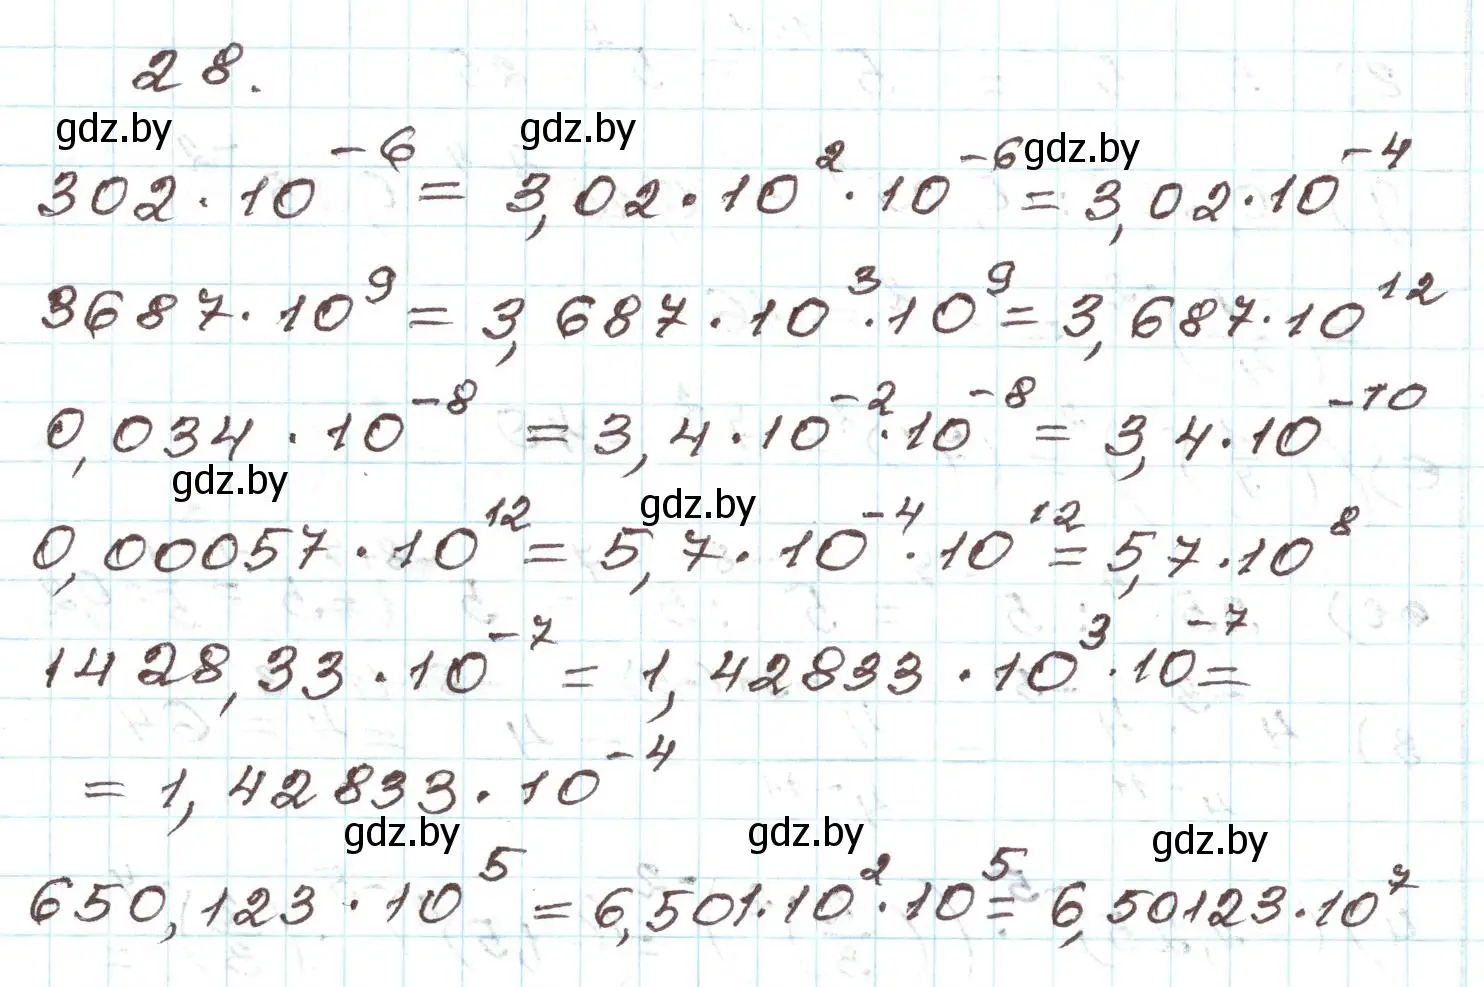 28.
gdz.by gdz.by gdz.by
302 · 10⁻⁶ = 3,02 · 10² · 10⁻⁶ = 3,02 · 10⁻⁴
3687 · 10⁹ = 3,687 · 10³ · 10⁹ = 3,687 · 10¹²
0,034 · 10⁻⁸ = 3,4 · 10⁻² · 10⁻⁸ = 3,4 · 10⁻¹⁰
gdz.by gdz.by
0,00057 · 10¹² = 5,7 · 10⁻⁴ · 10¹² = 5,7 · 10⁸
1428,33 · 10⁻⁷ = 1,42833 · 10³ · 10⁻⁷ =
= 1,42833 · 10⁻⁴
gdz.by gdz.by gdz.by
650,123 · 10⁵ = 6,501 · 10² · 10⁵ = 6,50123 · 10⁷